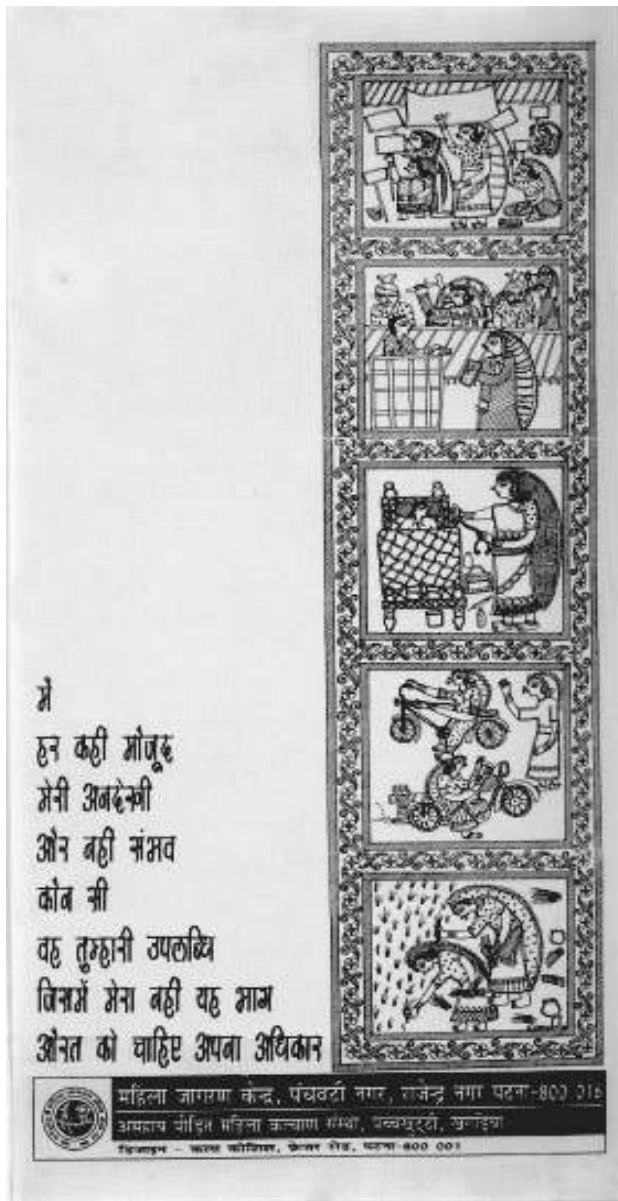 में
हर कहीं मौजूद
मेरी अनदेखी
और नहीं संभव
कौन सी
वह तुम्हारी उपलब्धि
जिसमें मेरा नहीं यह भाग
औरत को चाहिए अपना अधिकार
महिला जागरण केन्द्र, पंचवटी नगर, राजेन्द्र नगर पटना-800 016
पीड़ित महिला कल्याण संस्था,
डिजाइन - रोड, पटना-800 001